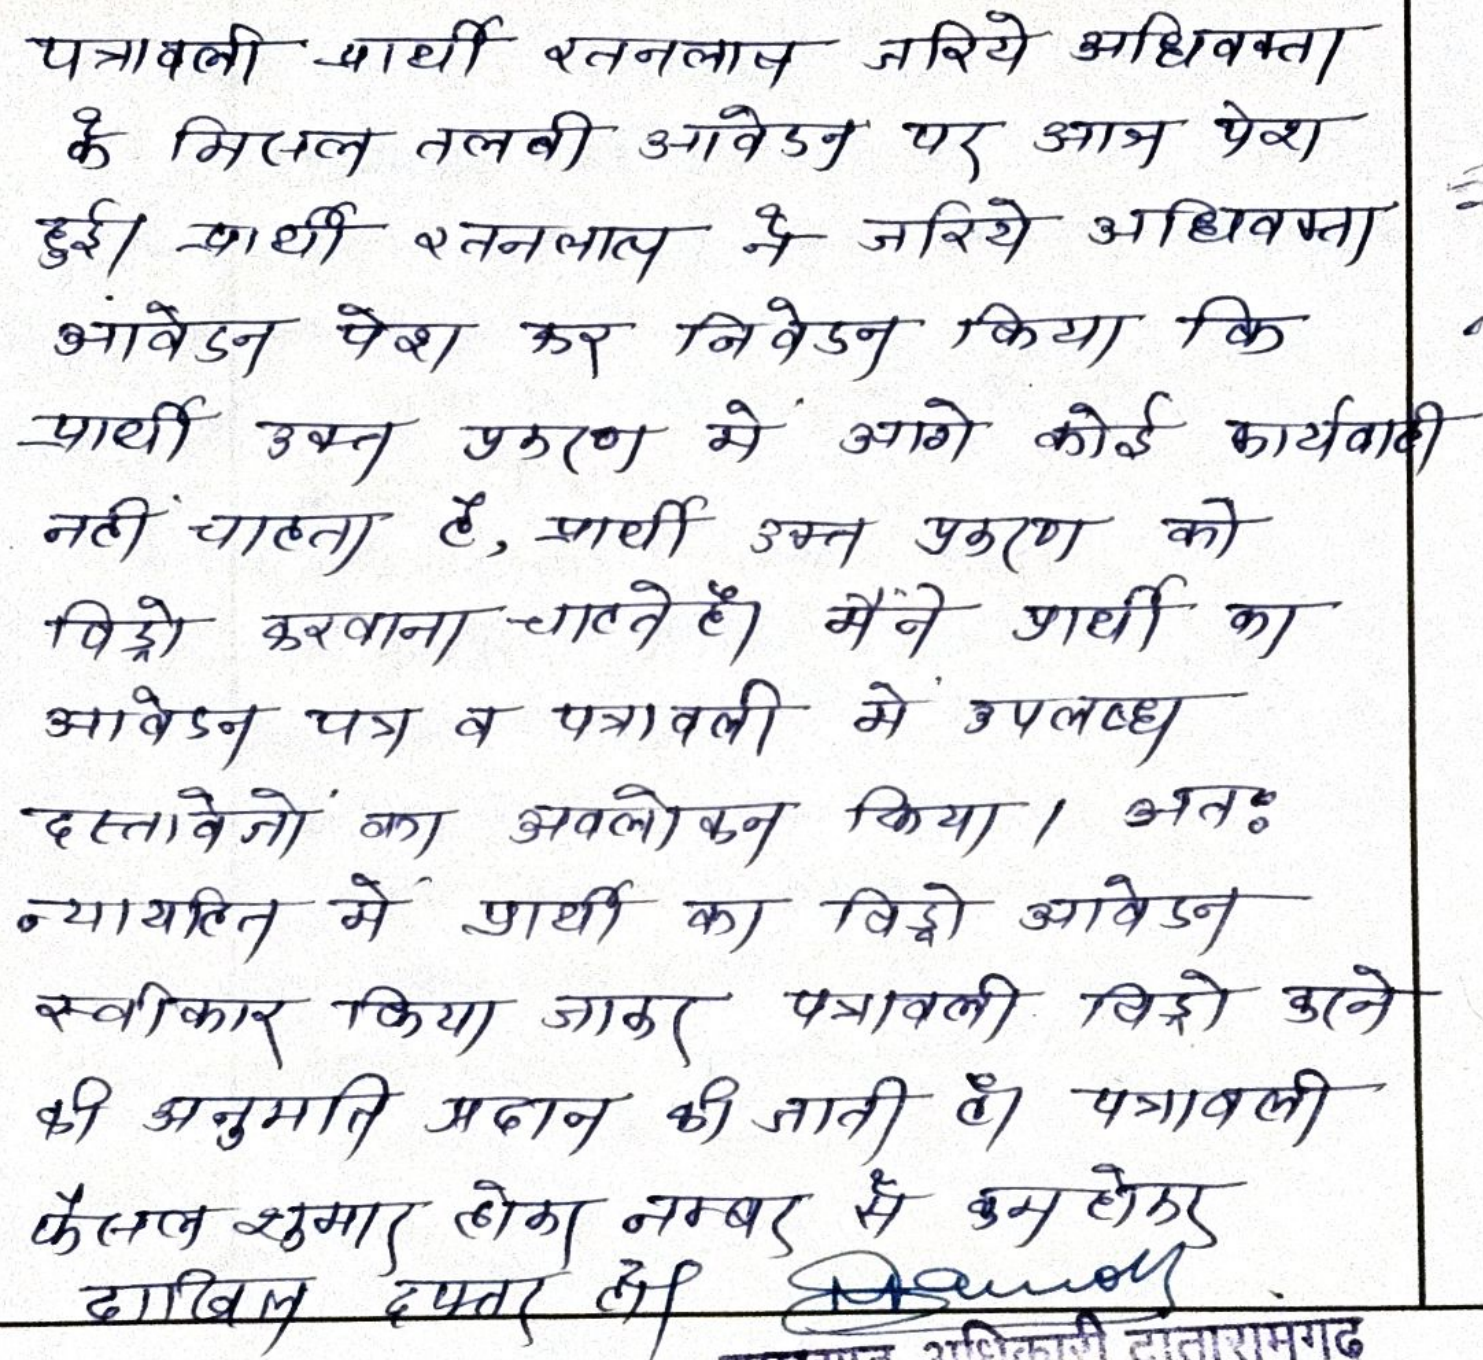 पत्रावली प्रार्थी रतनलाल जरिये अधिवक्ता
के मिसल तलबी आवेदन पर आज पेश
हुई। प्रार्थी रतनलाल ने जरिये अधिवक्ता
आवेदन पेश कर निवेदन किया कि
प्रार्थी उक्त प्रकरण में आगे कोई कार्यवाही
नहीं चाहता है, प्रार्थी उक्त प्रकरण को
विड्रो करवाना चाहते है। मैंने प्रार्थी का
आवेदन पत्र व पत्रावली में उपलब्ध
दस्तावेजों का अवलोकन किया। अतः
न्यायहित में प्रार्थी का विड्रो आवेदन
स्वीकार किया जाकर पत्रावली विड्रो करने
की अनुमति प्रदान की जाती है। पत्रावली
फैसल शुमार होकर नम्बर से कम होकर
दाखिल दफ्तर हो।
अधिकारी दातारामगढ